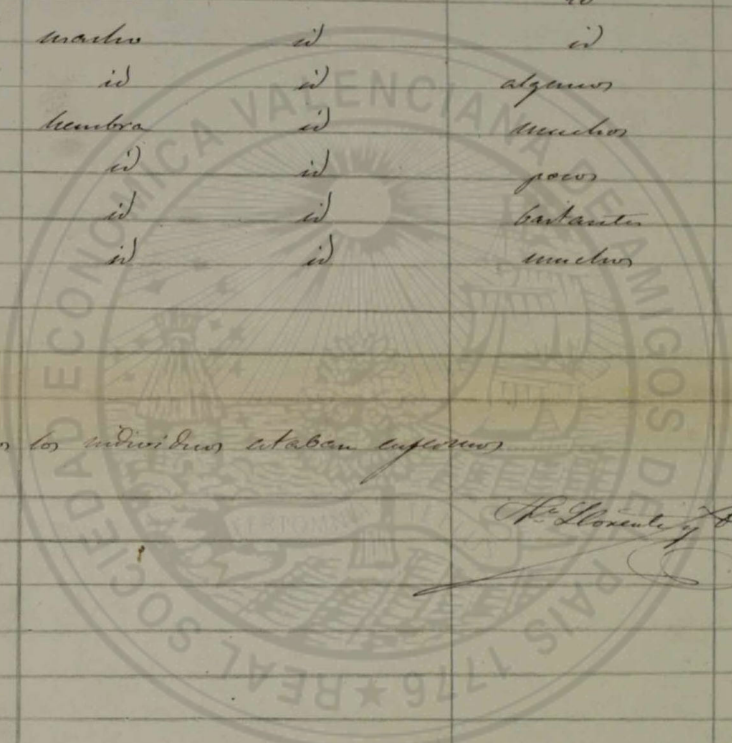 id
macho id id
id id algunos
hembra id muchos
id id pocos
id id bastantes
id id muchos
los individuos estaban enfermos
Llorente y
REAL SOCIEDAD ECONOMICA VALENCIANA DE AMIGOS DEL PAIS 1776